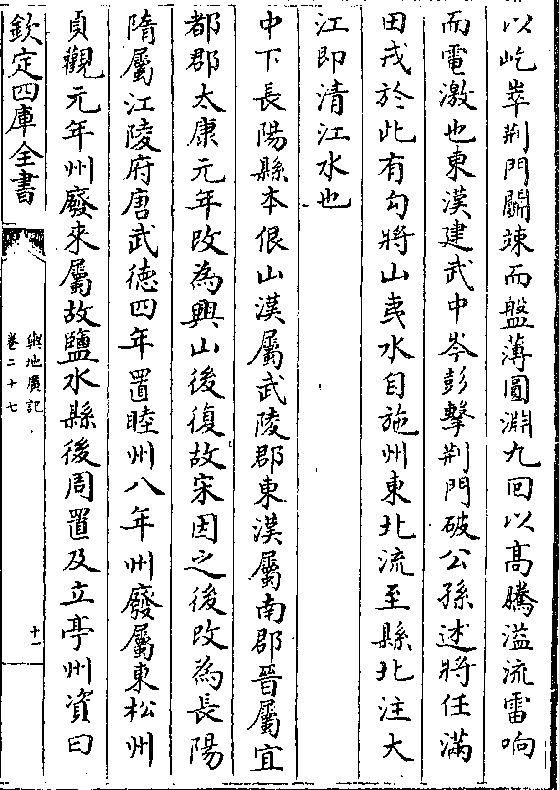 以屹崒荆門闢竦而盤薄圓淵九回以髙騰溢流雷响
而電激也東漢建武中岑彭擊荆門破公孫述將任滿
田戎於此有勾將山夷水自施州東北流至縣北注大
江即清江水也
中下長陽縣本佷山漢屬武陵郡東漢屬南郡晉屬宜
都郡太康元年改為興山後復故宋因之後改為長陽
隋屬江陵府唐武徳四年置睦州八年州廢屬東松州
貞觀元年州廢來屬故鹽水縣後周置及立亭州資曰
欽定四庫全書
輿地廣記
卷二十七
十一